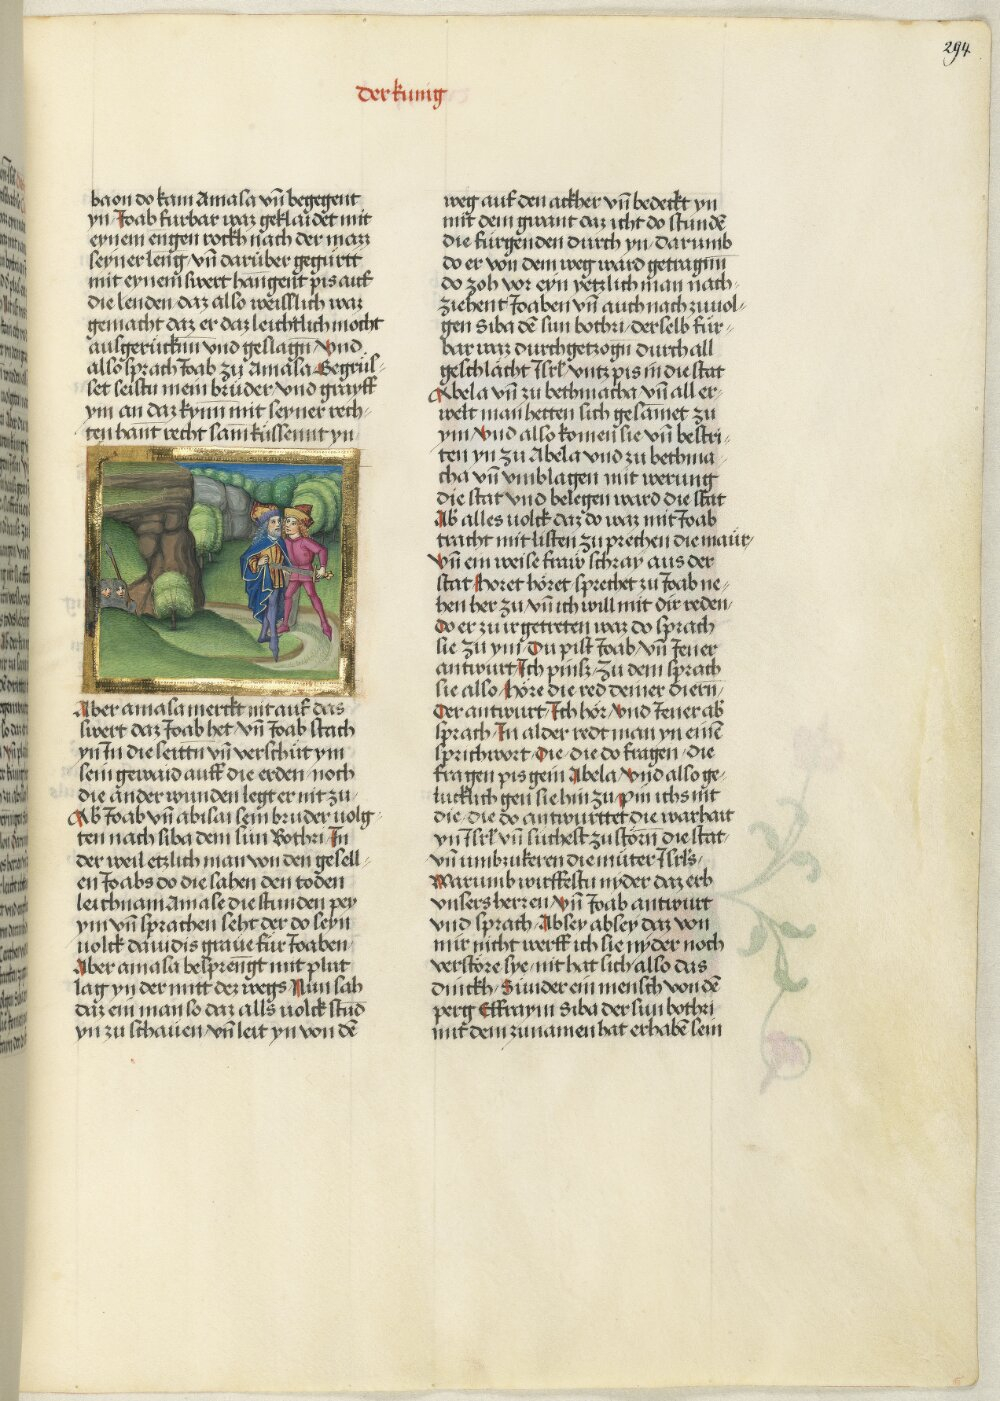 294
der kunig
baon do kam Amasa vnd begegent
yn Joab furbar waz geklaidet mit
eynem engen rockh nach der mazz
seyner leng vn̄ darüber gegürtt
mit eynem swert hangent pis auf
die lenden daz also weisslich waz
gemacht daz er daz leichtlich mocht
ausgerücknn vnd geslagn vnd
also sprach Joab zu Amasa Gegrüs-
set seistu mein brüder vnd grayff
ym an daz kynn mit seyner rech-
ten hant recht sam küssennt yn
Aber amasa merckt nit auf das
swert daz Joab het vn̄ Joab stach
yn In die seittn vn̄ verschüt ym
sein gewaid auff die erden noch
die ander wunden legt er nit zu
Ab Joab vn̄ abisai sein bruder uolg-
ten nach siba dem sun Bothri In
der weil etzlich man von den gesell-
en Joabs do die sahen den toden
leichnam Amase die stunden pey
ym vn̄ sprachen seht der do seyn
uolck dauidis graue für Joaben
Aber amasa besprengt mit plut
lag yn der mitt dez wegs Nun sah
daz ein man so daz alls uolck stūd
yn zu schauen vn̄ leit yn von dē
weg auf den ackher vn̄ bedeckt yn
mit dem gwant daz icht do stundē
die fürgenden durch yn darumb
do er von dem weg ward getragnn
do zoh vor eyn yetzlich man nach-
ziehent Joaben vn̄ auch nachzuuol-
gen Siba dē sun bothri derselb für-
bar waz durchgetzogn durch all
geschlächt Isrl vntz pis in die stat
Abela vn̄ zu bethmacha vn̄ all er-
welt man hetten sich gesamet zu
ym Vnd also komen sie vn̄ bestri-
ten yn zu Abela vnd zu bethma-
cha vn̄ vmblagen mit werung
die stat vnd belegen ward die stat
Ab alles uolck daz do waz mit Joab
tracht mit listen zu prechen die maur
Vn̄ ein weise fraw schray aus der
stat horet höret sprechet zu Joab ne-
hen her zu vn̄ ich will mit dir reden
Do er zu ir getreten waz do sprach
sie zu ym Du pist Joab vn̄ Jener
antwurt Ich pinsz Zu dem sprach
sie also höre die red deiner diern
Der antwurt Ich hör Vnd Jener ab
sprach In alder redt man yn einē
sprichwort Die die do fragen die
fragen pis gein Abela Vnd also ge-
lücklich gen sie hin zu pin ichs nit
die die do antwurttet die warhait
yn Isrl vn̄ suchest zustörn die stat
vn̄ umbzukeren die müter Isrls
Warumb wirffestu nyder daz erb
vnsers herren Vn̄ Joab antwurt
vnd sprach Absey absey daz von
mir nicht werff ich sie nyder noch
verstöre sye nit hat sich also das
dinckh Sunder ein mensch von dē
perg Effraym Siba der sun bothri
mit dem zunamen hat erhabē sein